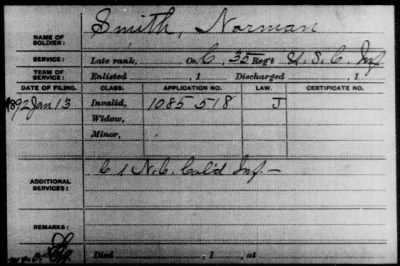 NAME OF SOLDIER: Smith, Norman
SERVICE: Late rank, Co. C, 35 Reg't U.S.C. Inf
TERM OF SERVICE: Enlisted , 1 Discharged , 1
DATE OF FILING. CLASS. APPLICATION NO. LAW. CERTIFICATE NO.
1892 Jan 13 Invalid, 1085 518 J
Widow,
Minor,
ADDITIONAL SERVICES: C 1 N.C. Col'd Inf.—
REMARKS:
Died , 1 , at